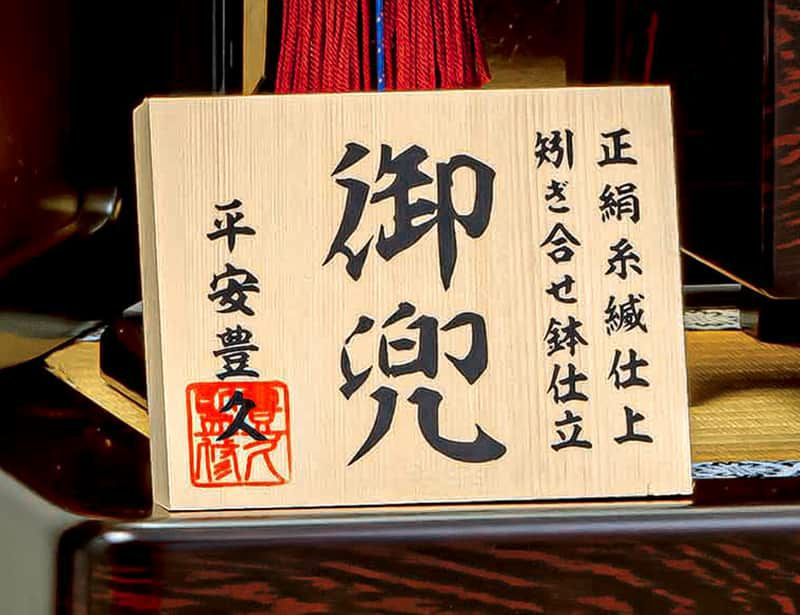 正絹糸縅仕上
矧ぎ合せ鉢仕立
御兜
平安豊久